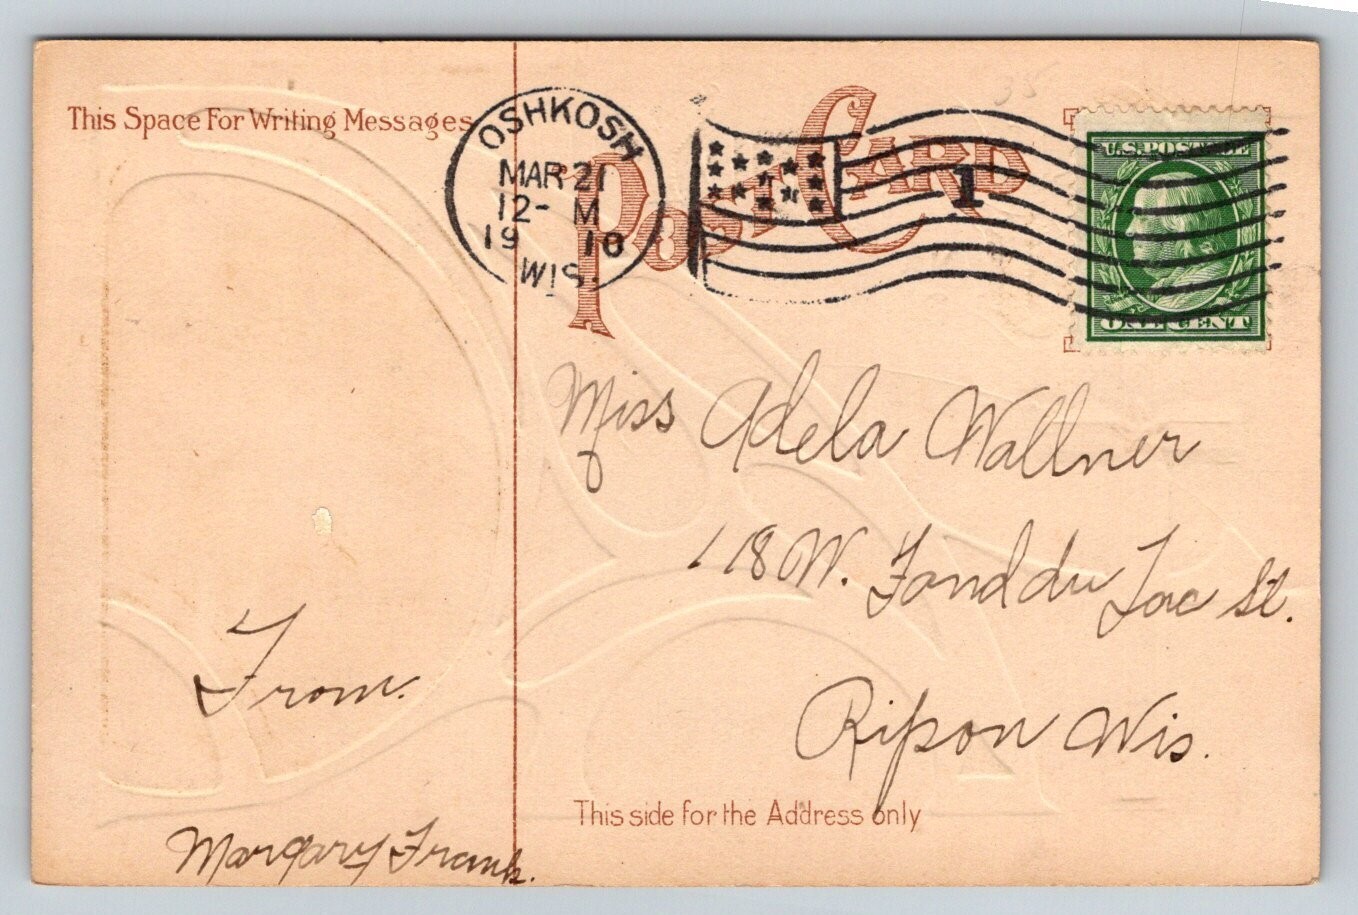 This Space For Writing Messages
POST CARD
OSHKOSH
MAR 21
12- M
19 10
WIS.
1
U.S. POSTAGE
ONE CENT
Miss Adela Wallner
118 W. Fond du Lac St.
Ripon Wis.
From.
Margary Frank.
This side for the Address only